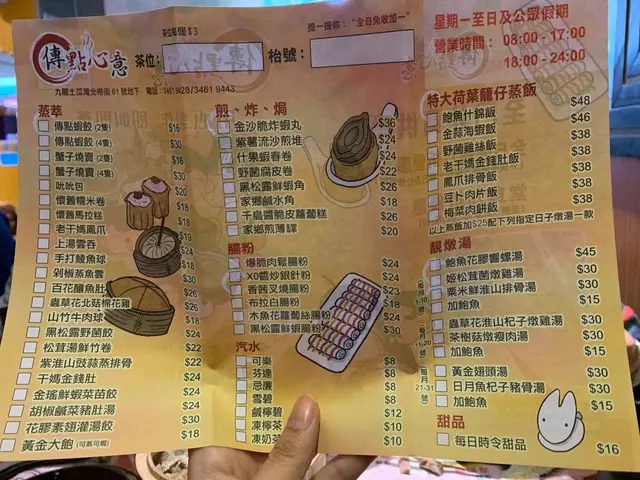 茶位每個 $3
提一提你："全日免收加一"
傳點心意
茶位：
枱號：
九龍土瓜灣北帝街 61 號地下 電話：3461 9428/3461 9443
星期一至日及公眾假期
營業時間： 08:00 - 17:00
18:00 - 24:00
蒸萃
傳點蝦餃 (2隻) $16
傳點蝦餃 (4隻) $30
蟹子燒賣 (2隻) $16
蟹子燒賣 (4隻) $30
吮吮包 $20
懷舊糯米卷 $18
懷舊馬拉糕 $18
老干媽鳳爪
上湯雲吞
手打鯪魚球
剁椒蒸魚雲
百花釀魚肚
蟲草花北菇棉花雞
山竹牛肉球
黑松露野菌餃 $24
松茸湯鮮竹卷 $22
紫淮山豉蒜蒸排骨 $22
干媽金錢肚 $24
金瑤鮮蝦菜苗餃 $24
胡椒鹹菜豬肚湯 $24
花膠素翅灌湯餃 $30
黃金大飽 (可蒸可焗) $18
煎、炸、焗
金沙脆炸蝦丸 $36
紫薯流沙煎堆 $24
什果蝦春卷 $24
野菌腐皮卷 $22
黑松露鮮蝦角 $24
家鄉鹹水角
千島醬脆皮蘿蔔糕 $26
家鄉煎薄罉 $20
腸粉
爆脆肉鬆腸粉 $24
XO醬炒銀針粉 $24
香茜叉燒腸粉 $23
布拉白腸粉
木魚花蘿蔔絲腸粉 $24
黑松露鮮蝦腸粉 $30
汽水
可樂 $8
芬達 $8
忌廉 $8
雪碧 $8
鹹檸碧 $12
凍檸茶 $10
凍奶茶 $10
特大荷葉籠仔蒸飯
鮑魚什錦飯 $48
金蒜海蝦飯 $46
野菌雞絲飯 $38
老干媽金錢肚飯 $38
鳳爪排骨飯 $38
豆卜肉片飯 $38
梅菜肉餅飯 $38
以上蒸飯加$25配下列指定日子燉湯一款
靚燉湯
每月1-10號
鮑魚花膠響螺湯 $45
姬松茸菌燉雞湯 $30
粟米鮮淮山排骨湯 $30
加鮑魚 $15
每月11-20號
蟲草花淮山杞子燉雞湯 $30
茶樹菇燉瘦肉湯 $30
加鮑魚 $15
每月21-31號
黃金翅頭湯 $30
日月魚杞子豬骨湯 $30
加鮑魚 $15
甜品
每日時令甜品 $16